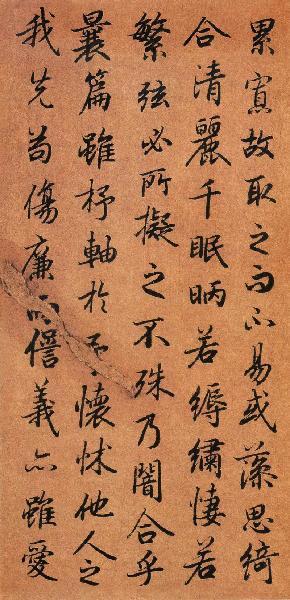 累寡故取足而不易或藻思綺
合清麗千眠昞若縟繡悽若
繁弦必所擬之不殊乃闇合乎
曩篇雖杼軸於予懷怵他人之
我先苟傷廉而愆義亦雖愛